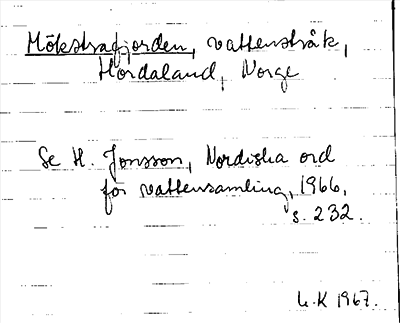 Mökstrafjorden, vattenstråk,
Hordaland, Norge
Se H. Jonsson, Nordiska ord
för vattensamling, 1966,
s. 232.
L.K 1967.